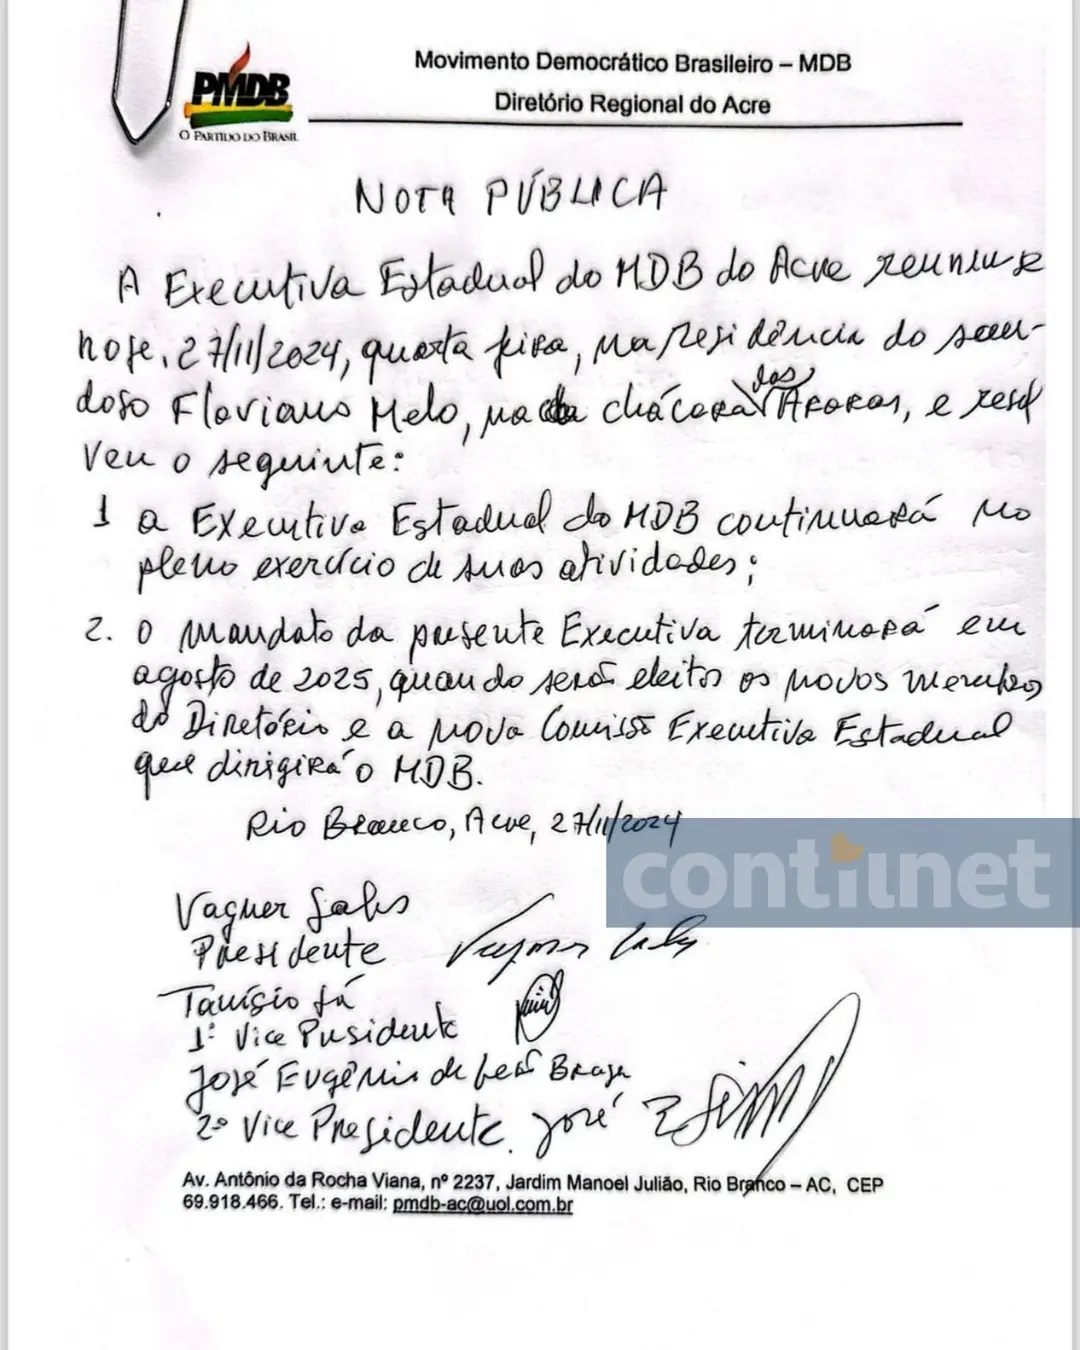 PMDB
O PARTIDO DO BRASIL
Movimento Democrático Brasileiro – MDB
Diretório Regional do Acre
NOTA PÚBLICA
A Executiva Estadual do MDB do Acre reuniu-se
hoje, 27/11/2024, quarta feira, na residência do sau-
doso Flaviano Melo, na chácara das Araras, e resol
veu o seguinte:
1 a Executiva Estadual do MDB continuará no
pleno exercício de suas atividades;
2. O mandato da presente Executiva terminará em
agosto de 2025, quando serão eleitos os novos membros
do Diretório e a nova Comissão Executiva Estadual
que dirigirá o MDB.
Rio Branco, Acre, 27/11/2024
contilnet
Vagner Sales
Presidente Vagner Sales
Tanísio Sá
1º Vice Presidente
José Eugênio de Leão Braga
2º Vice Presidente. José
Av. Antônio da Rocha Viana, nº 2237, Jardim Manoel Julião, Rio Branco – AC, CEP
69.918.466. Tel.: e-mail: pmdb-ac@uol.com.br